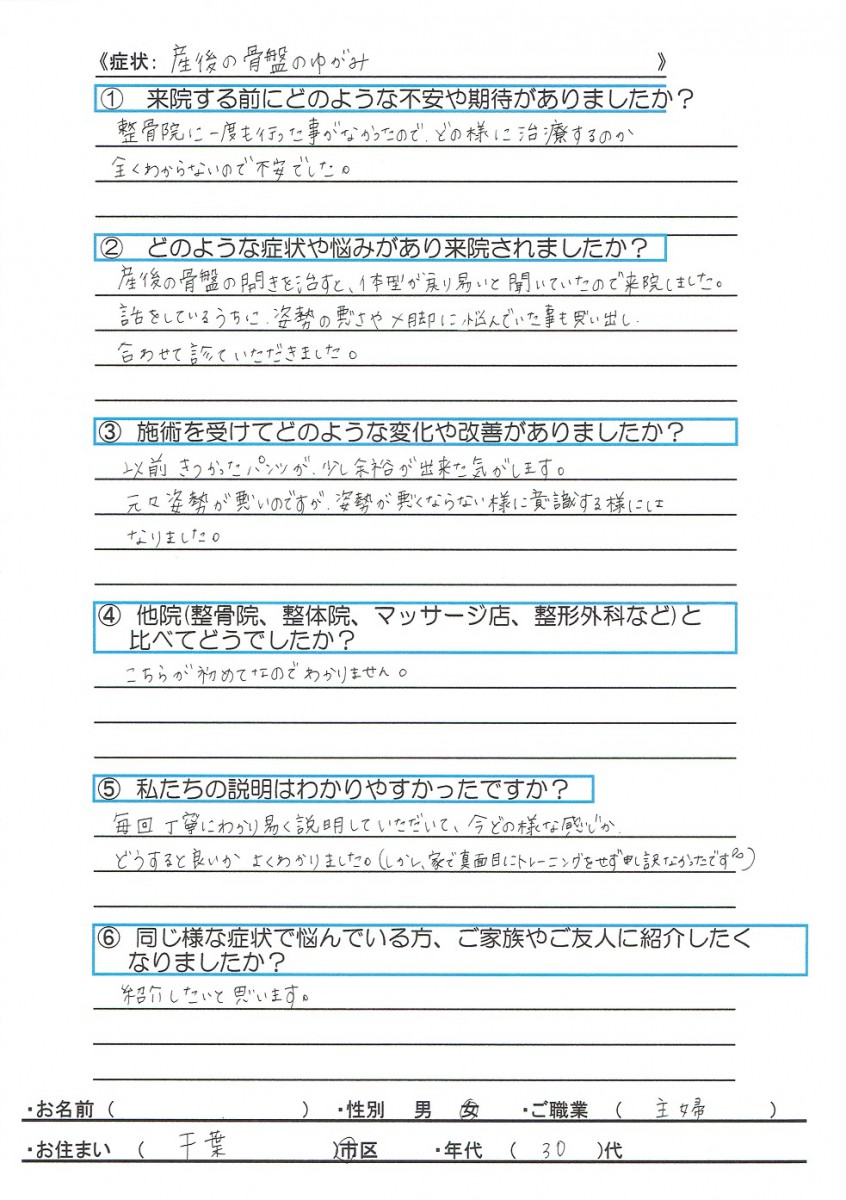 《症状: 産後の骨盤のゆがみ 》
① 来院する前にどのような不安や期待がありましたか？
整骨院に一度も行った事がなかったので、どの様に治療するのか
全くわからないので不安でした。
② どのような症状や悩みがあり来院されましたか？
産後の骨盤の開きを治すと、体型が戻り易いと聞いていたので来院しました。
話をしているうちに、姿勢の悪さやX脚に悩んでいた事も思い出し、
合わせて診ていただきました。
③ 施術を受けてどのような変化や改善がありましたか？
以前きつかったパンツが、少し余裕が出来た気がします。
元々姿勢が悪いのですが、姿勢が悪くならない様に意識する様には
なりました。
④ 他院(整骨院、整体院、マッサージ店、整形外科など)と
比べてどうでしたか？
こちらが初めてなのでわかりません。
⑤ 私たちの説明はわかりやすかったですか？
毎回丁寧にわかり易く説明していただいて、今どの様な感じか、
どうすると良いか よくわかりました。(しかし、家で真面目にトレーニングをせず申し訳なかったです。)
⑥ 同じ様な症状で悩んでいる方、ご家族やご友人に紹介したく
なりましたか？
紹介したいと思います。
・お名前 ( ) ・性別 男 女 ・ご職業 ( 主婦 )
・お住まい ( 千葉 )市区 ・年代 ( 30 )代